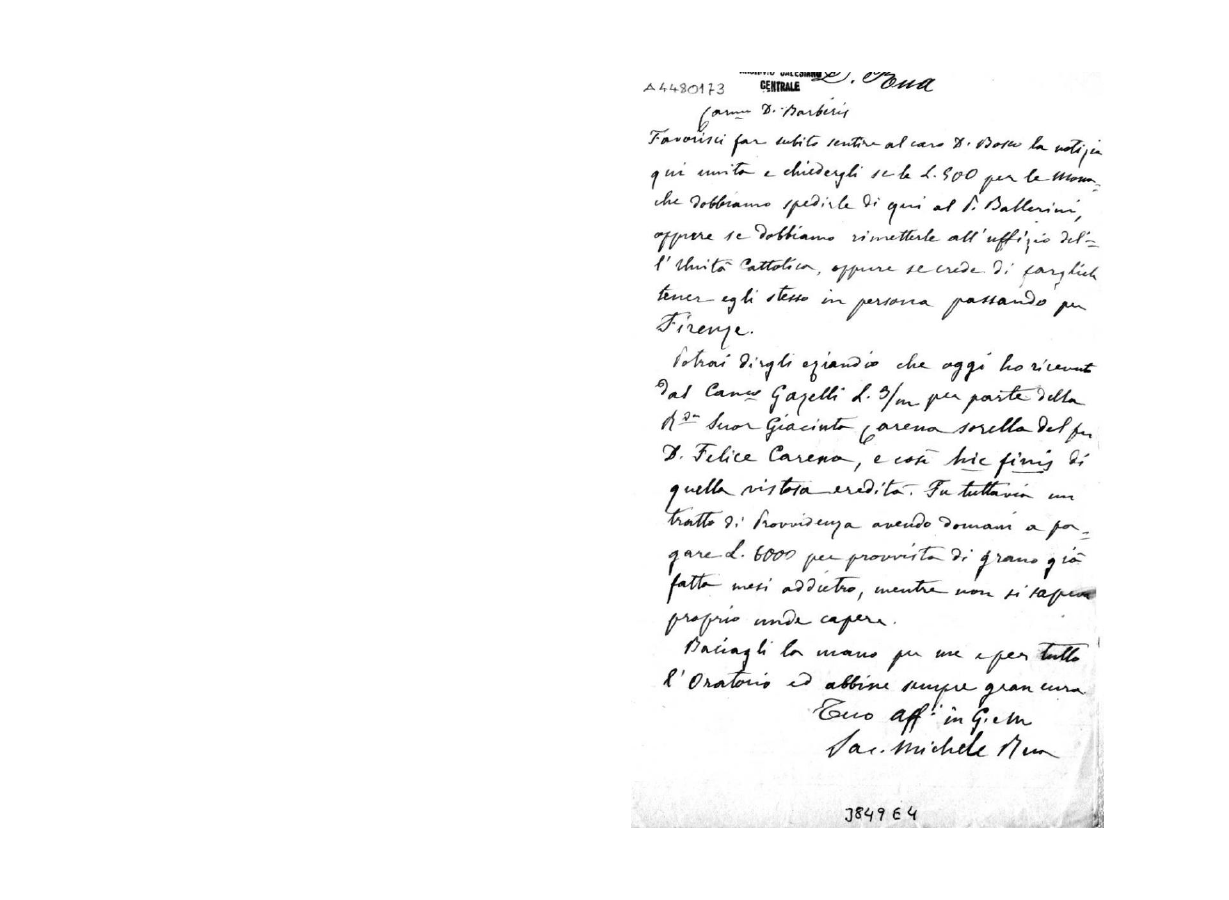 A4480173
ARCHIVIO SALESIANO
CENTRALE
D.
Car.mo D. Barberis
Favorisci far subito sentire al caro D. Bosco la notizia
qui unita e chiedergli se le L. 500 per le Mona-
che dobbiamo spedirle di qui al P. Ballerini,
oppure se dobbiamo rimetterle all'uffizio del=
l'Unità Cattolica, oppure se crede di farglieli
tener egli stesso in persona passando per
Firenze.
Potrai dirgli eziandio che oggi ho ricevuto
dal Can.co Gazelli L. 3/m per parte della
R.da Suor Giacinta Carena sorella del fu
D. Felice Carena, e così hic finis di
quella vistosa eredità. Fu tuttavia un
tratto di Provvidenza avendo domani a pa=
gare L. 6000 per provvista di grano già
fatta mesi addietro, mentre non si sapeva
proprio unde capere.
Baciagli la mano per me e per tutto
l'Oratorio ed abbine sempre gran cura
Tuo aff. in G. e M
Sac. Michele Rua
3849 E 4